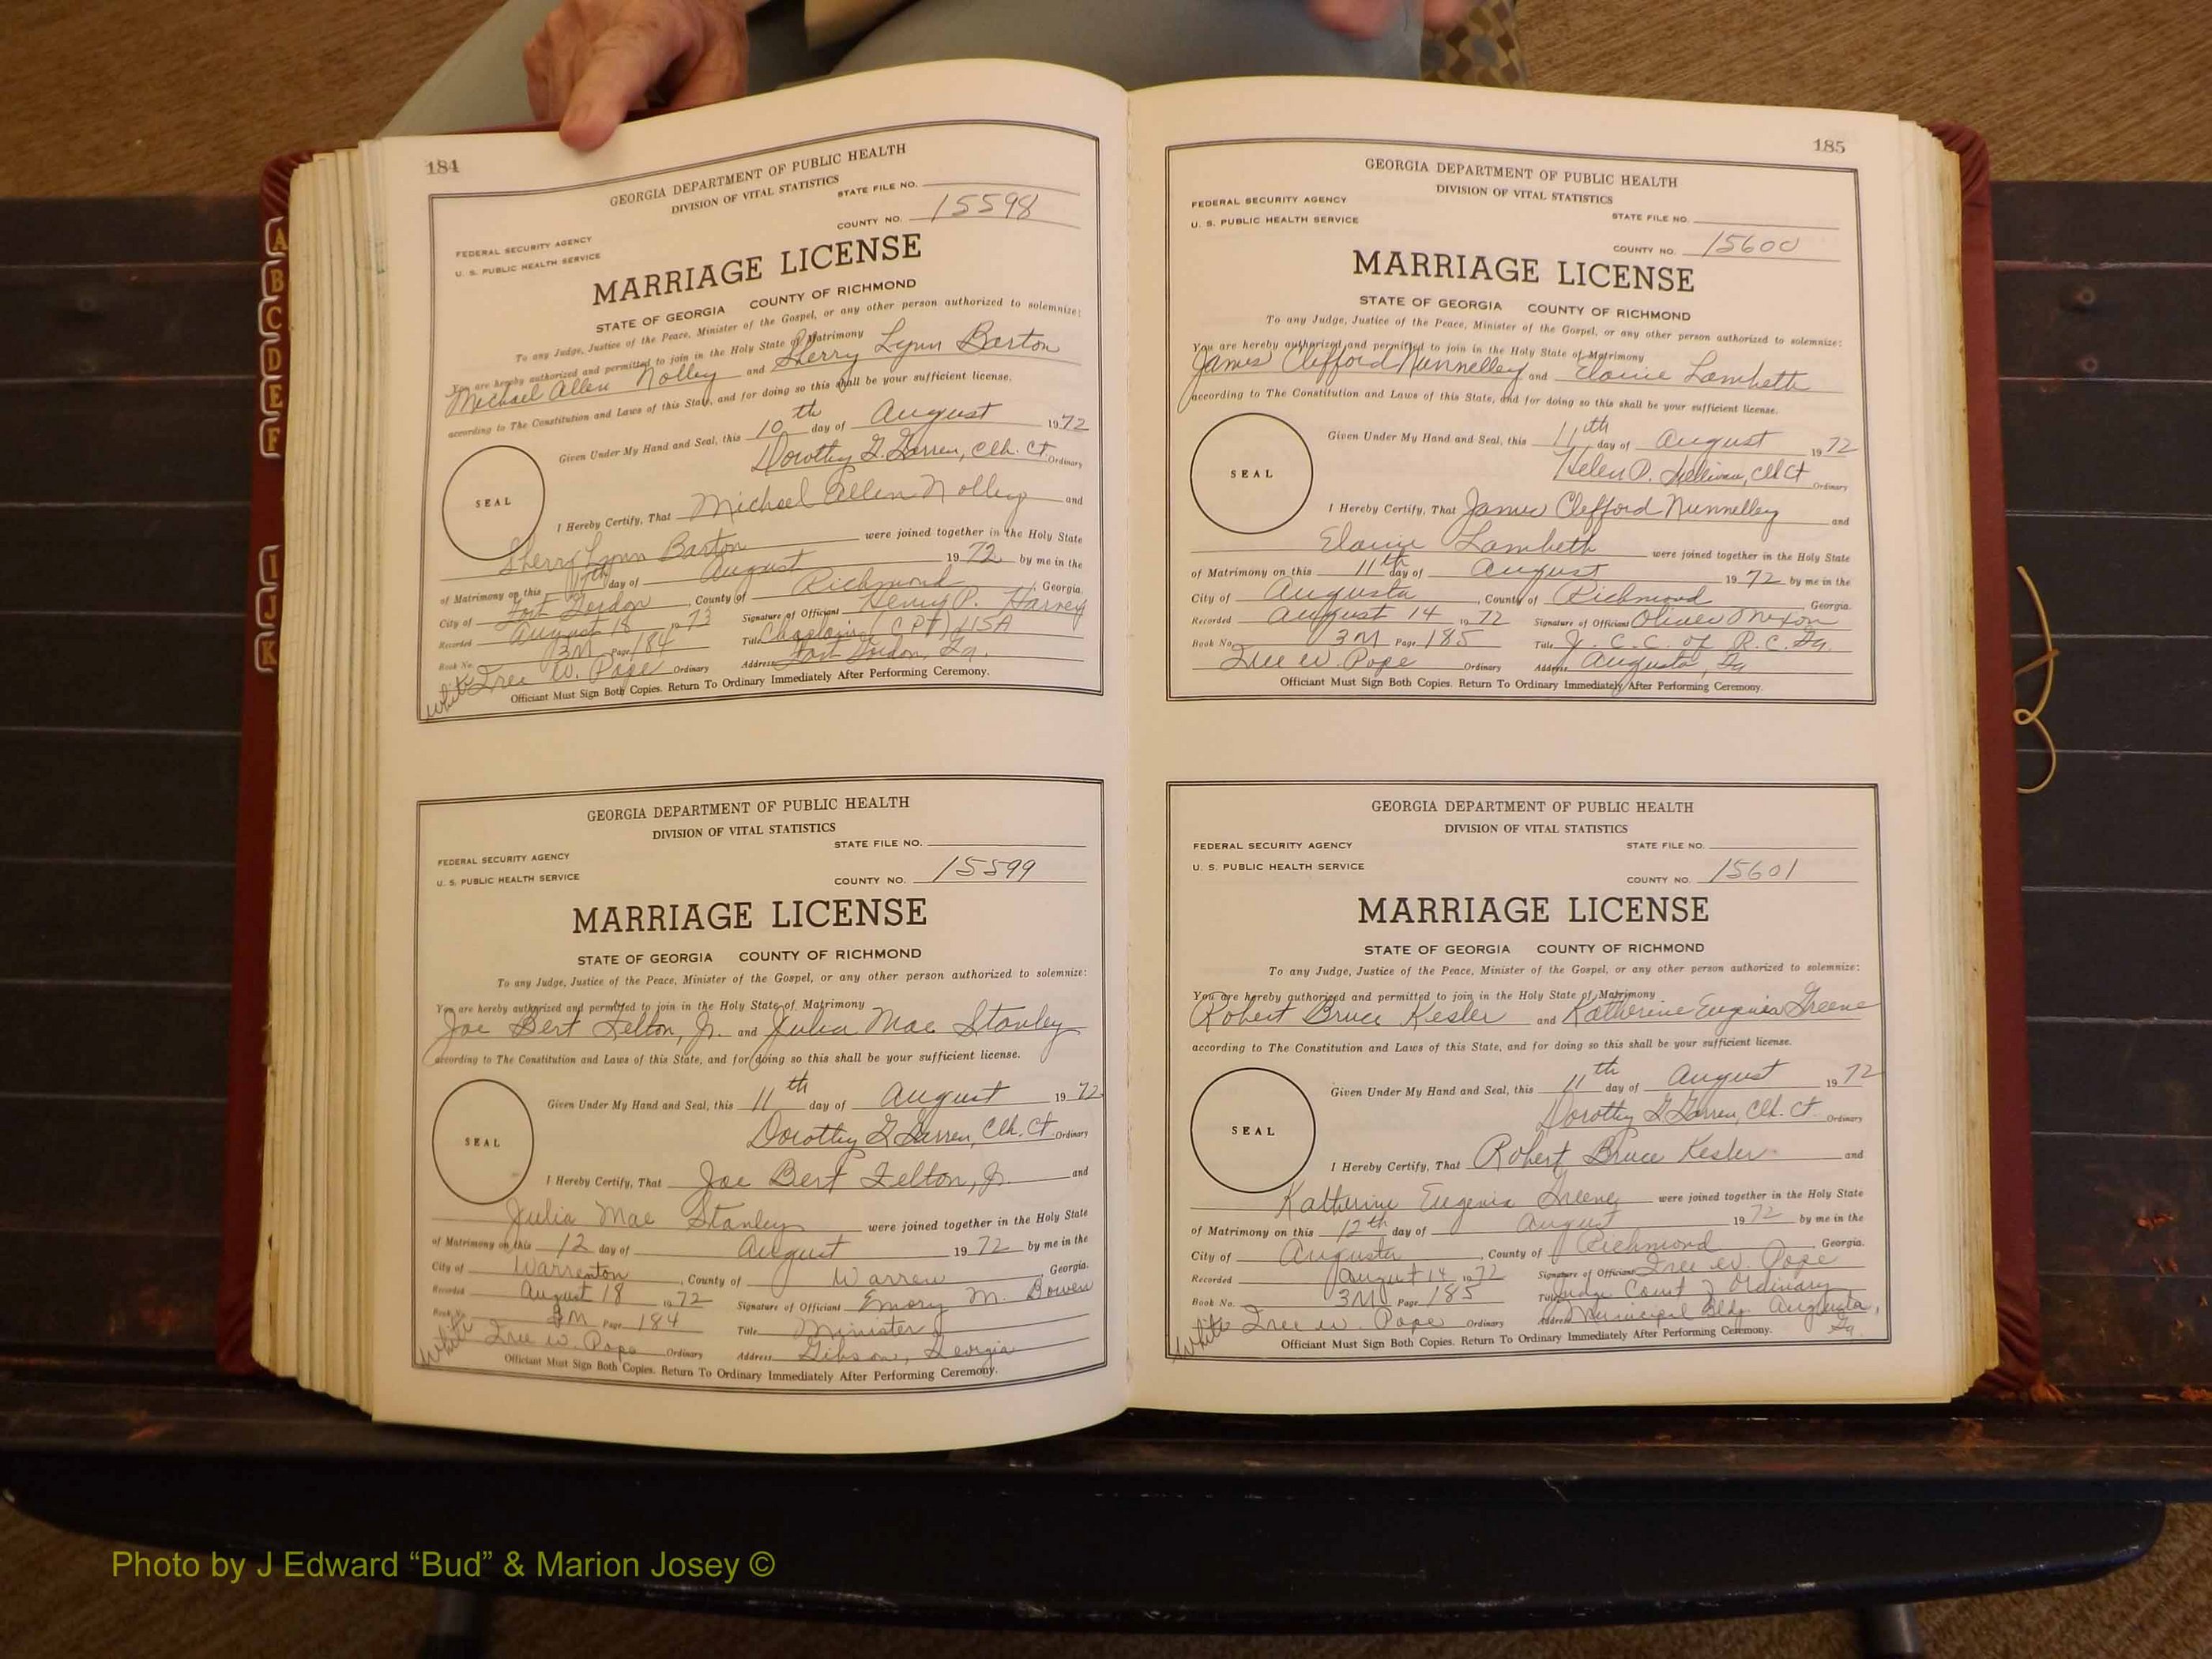 184
GEORGIA DEPARTMENT OF PUBLIC HEALTH
DIVISION OF VITAL STATISTICS
STATE FILE NO.
COUNTY NO. 15598
FEDERAL SECURITY AGENCY
U. S. PUBLIC HEALTH SERVICE
MARRIAGE LICENSE
STATE OF GEORGIA COUNTY OF RICHMOND
To any Judge, Justice of the Peace, Minister of the Gospel, or any other person authorized to solemnize:
You are hereby authorized and permitted to join in the Holy State of Matrimony
Michael Allen Nolley and Sherry Lynn Barton
according to The Constitution and Laws of this State, and for doing so this shall be your sufficient license.
Given Under My Hand and Seal, this 10th day of August 1972
Dorothy Clk. Ct. Ordinary
SEAL
I Hereby Certify, That Michael Allen Nolley and
Sherry Lynn Barton were joined together in the Holy State
of Matrimony on this 17th day of August 1972 by me in the
City of Fort Gordon, County of Richmond Georgia.
Recorded August 18 1973 Signature of Officiant Henry P. Harvey
Book No. 3M Page 184 Title Chaplain (CPT) USA
Free W. Pope Ordinary Address Fort Gordon, Ga.
White
Officiant Must Sign Both Copies. Return To Ordinary Immediately After Performing Ceremony.
GEORGIA DEPARTMENT OF PUBLIC HEALTH
DIVISION OF VITAL STATISTICS
STATE FILE NO.
FEDERAL SECURITY AGENCY
U. S. PUBLIC HEALTH SERVICE
COUNTY NO. 15599
MARRIAGE LICENSE
STATE OF GEORGIA COUNTY OF RICHMOND
To any Judge, Justice of the Peace, Minister of the Gospel, or any other person authorized to solemnize:
You are hereby authorized and permitted to join in the Holy State of Matrimony
Joe Bert Felton, Jr. and Julia Mae Stanley
according to The Constitution and Laws of this State, and for doing so this shall be your sufficient license.
Given Under My Hand and Seal, this 11th day of August 1972
Dorothy Clk. Ct. Ordinary
SEAL
I Hereby Certify, That Joe Bert Felton, Jr. and
Julia Mae Stanley were joined together in the Holy State
of Matrimony on this 12 day of August 1972 by me in the
City of Warrenton, County of Warren Georgia.
Recorded August 18 1972 Signature of Officiant Emory M. Bowen
Book No. 3M Page 184 Title Minister
Free W. Pope Ordinary Address Gibson, Georgia
White
Officiant Must Sign Both Copies. Return To Ordinary Immediately After Performing Ceremony.
185
GEORGIA DEPARTMENT OF PUBLIC HEALTH
DIVISION OF VITAL STATISTICS
FEDERAL SECURITY AGENCY
U. S. PUBLIC HEALTH SERVICE
STATE FILE NO.
COUNTY NO. 15600
MARRIAGE LICENSE
STATE OF GEORGIA COUNTY OF RICHMOND
To any Judge, Justice of the Peace, Minister of the Gospel, or any other person authorized to solemnize:
You are hereby authorized and permitted to join in the Holy State of Matrimony
James Clifford Nunnelley and Elaine Lambeth
according to The Constitution and Laws of this State, and for doing so this shall be your sufficient license.
Given Under My Hand and Seal, this 11th day of August 1972
Helen P. Sullivan, Clk Ct Ordinary
SEAL
I Hereby Certify, That James Clifford Nunnelley and
Elaine Lambeth were joined together in the Holy State
of Matrimony on this 11th day of August 1972 by me in the
City of Augusta, County of Richmond Georgia.
Recorded August 14 1972 Signature of Officiant Oliver Mixon
Book No. 3M Page 185 Title J. C. C. of R. C. Ga.
Free W. Pope Ordinary Address Augusta, Ga
Officiant Must Sign Both Copies. Return To Ordinary Immediately After Performing Ceremony.
GEORGIA DEPARTMENT OF PUBLIC HEALTH
DIVISION OF VITAL STATISTICS
FEDERAL SECURITY AGENCY
STATE FILE NO.
U. S. PUBLIC HEALTH SERVICE
COUNTY NO. 15601
MARRIAGE LICENSE
STATE OF GEORGIA COUNTY OF RICHMOND
To any Judge, Justice of the Peace, Minister of the Gospel, or any other person authorized to solemnize:
You are hereby authorized and permitted to join in the Holy State of Matrimony
Robert Bruce Kesler and Katherine Eugenia Greene
according to The Constitution and Laws of this State, and for doing so this shall be your sufficient license.
Given Under My Hand and Seal, this 11th day of August 1972
Dorothy Clk. Ct. Ordinary
SEAL
I Hereby Certify, That Robert Bruce Kesler and
Katherine Eugenia Greene were joined together in the Holy State
of Matrimony on this 12th day of August 1972 by me in the
City of Augusta, County of Richmond Georgia.
Recorded August 14 1972 Signature of Officiant Free W. Pope
Book No. 3M Page 185 Title Judge Court of Ordinary
Free W. Pope Ordinary Address Municipal Bldg. Augusta, Ga.
White
Officiant Must Sign Both Copies. Return To Ordinary Immediately After Performing Ceremony.
A
B
C
D
E
F
I
J
K
Photo by J Edward “Bud” & Marion Josey ©